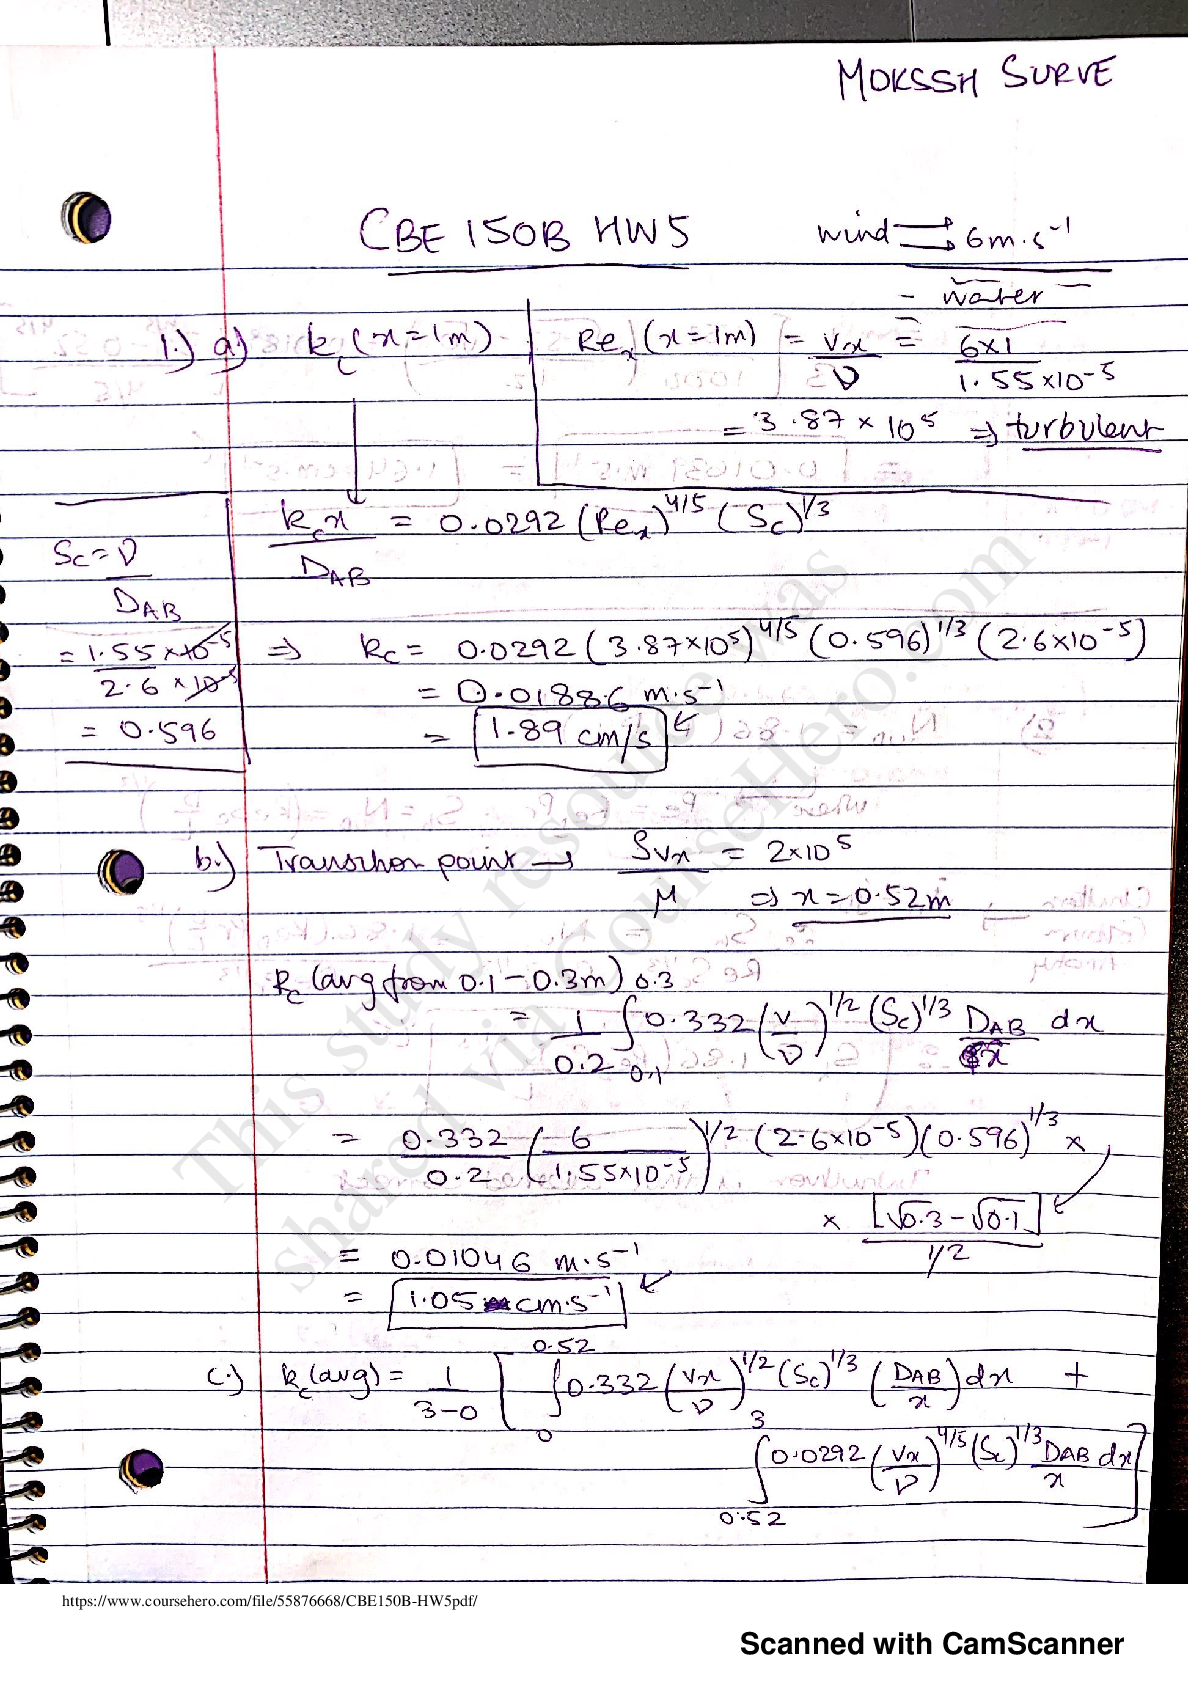 MOKSSH SURVE
CBE 150B HW5
wind → 6 m·s⁻¹
- water -
1.) a) k_c (x=1m)
Re_x (x=1m) = vx/ν = 6×1/1.55×10⁻⁵
= 3.87 × 10⁵ ⇒ turbulent
k_c x/D_AB = 0.0292 (Re_x)^4/5 (Sc)^1/3
Sc = ν/D_AB
= 1.55×10⁻⁵/2.6×10⁻⁵
= 0.596
⇒ k_c = 0.0292 (3.87×10⁵)^4/5 (0.596)^1/3 (2.6×10⁻⁵)
= 0.01886 m·s⁻¹
= 1.89 cm/s
b.) Transition point → ρvx/μ = 2×10⁵
⇒ x = 0.52m
k_c (avg from 0.1-0.3m)
= 1/0.2 ∫_0.1^0.3 0.332 (v/ν)^1/2 (Sc)^1/3 D_AB/√x dx
= 0.332/0.2 (6/1.55×10⁻⁵)^1/2 (2.6×10⁻⁵)(0.596)^1/3 ×
× [√0.3 - √0.1]/1/2
= 0.01046 m·s⁻¹
= 1.05 cm·s⁻¹
c.) k_c (avg) = 1/3-0 [ ∫_0^0.52 0.332 (vx/ν)^1/2 (Sc)^1/3 (D_AB/x) dx +
∫_0.52^3 0.0292 (vx/ν)^4/5 (Sc)^1/3 D_AB/x dx ]
This study resource was
shared via CourseHero.com
https://www.coursehero.com/file/55876668/CBE150B-HW5pdf/
Scanned with CamScanner